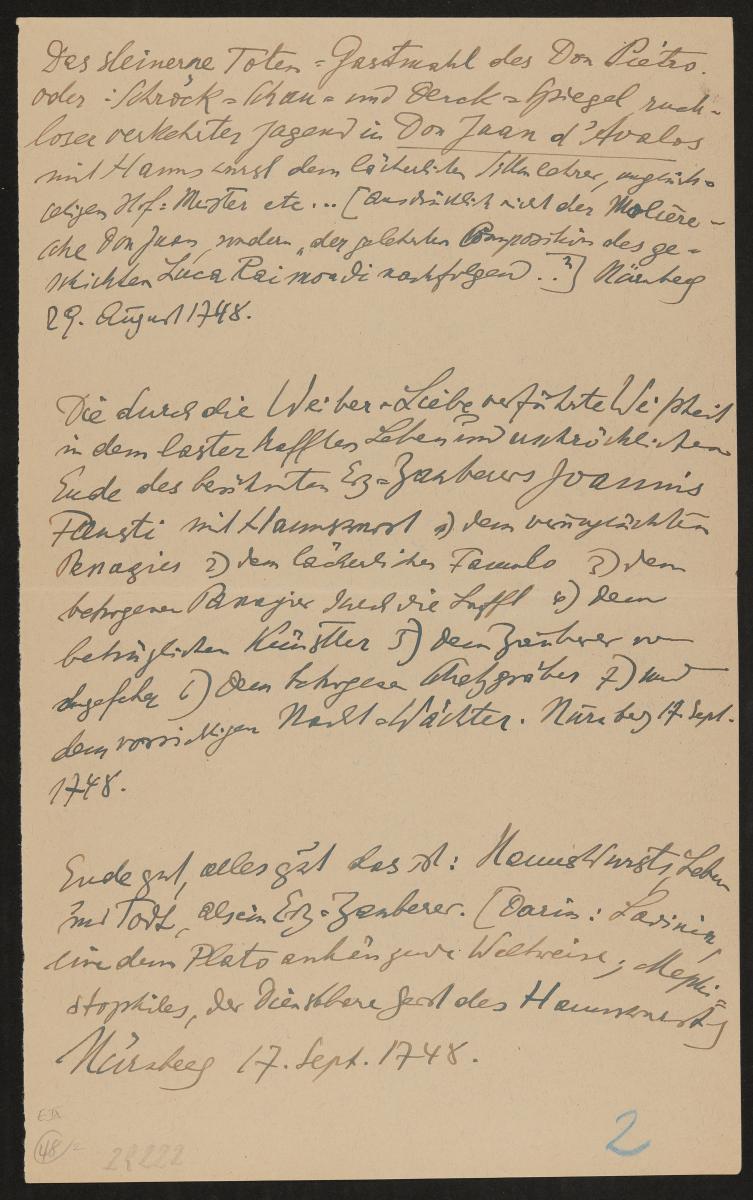 Das steinerne Toten=Gastmahl des Don Piétro.
oder: Schröck=Schau= und Denck=Spiegel ruch=
loser verkehrter Jugend in Don Juan d'Avalos
mit Hannswurst dem lächerlichen Sittenlehrer, unglück=
seligen Hof=Meister etc... [ausdrücklich nicht der Molière=
sche Don Juan, sondern „der gelehrten Composition des ge=
schickten Luca Raimondi nachfolgend..."] Nürnberg
29. August 1748.
Die durch die Weiber=Liebe verführte Weißheit
in dem lasterhafften Leben und erschröcklichen
Ende des berühmten Erz=Zauberers Joannis
Fausti mit Hannswurst 1) dem verunglückten
Passagier 2) dem lächerlichen Famulo 3) dem
betrogenen Passagier durch die Lufft 4) dem
betrüglichen Künstler 5) dem Zauberer von
ungefehr 6) dem betrogenen Schatzgräber 7) und
dem vorsichtigen Nacht=Wächter. Nürnberg 17. Sept.
1748.
Ende gut, alles gut das ist: HannsWursts Leben
und Todt, als ein Erz=Zauberer. [Darin: Lavinia,
eine dem Plato anhängende Weltweise; Mephi=
stophiles, der dienstbare Geist des Hannswursts]
Nürnberg 17. Sept. 1748.
48
22222
2